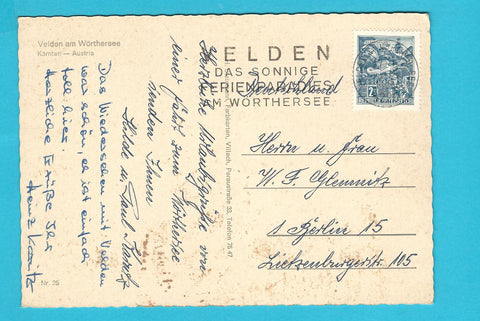 Velden am Wörthersee
Kärnten — Austria
VELDEN
DAS SONNIGE
FERIENPARADIES
AM WÖRTHERSEE
Deutschland
Herrn u. Frau
W. F. Glemnitz
1 Berlin 15
Lietzenburgerstr. 105
Herzliche Urlaubsgrüße von
einer Fahrt zum Wörthersee
senden Ihnen
Hilde u. Paul
Das Wiedersehen mit Velden
war schön, es ist einfach
toll hier.
Herzliche Grüße Ihr
Heinz
Villach, Peraustraße 33, Telefon 76 47
Nr. 25